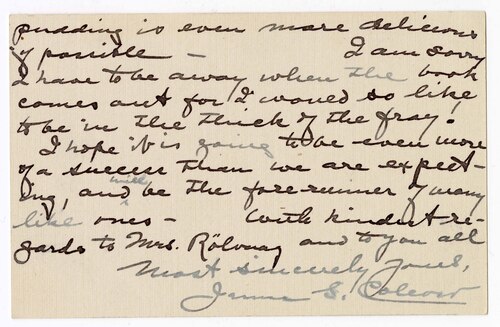 pudding is even more delicious
if possible — I am sorry
I have to be away when the book
comes out for I would so like
to be in the thick of the fray!
I hope it is going to be even more
of a success than we are expect-
ing, and will be the forerunner of many
like ones — With kindest re-
gards to Mrs. Rölvaag and to you all
Most sincerely yours,
S.